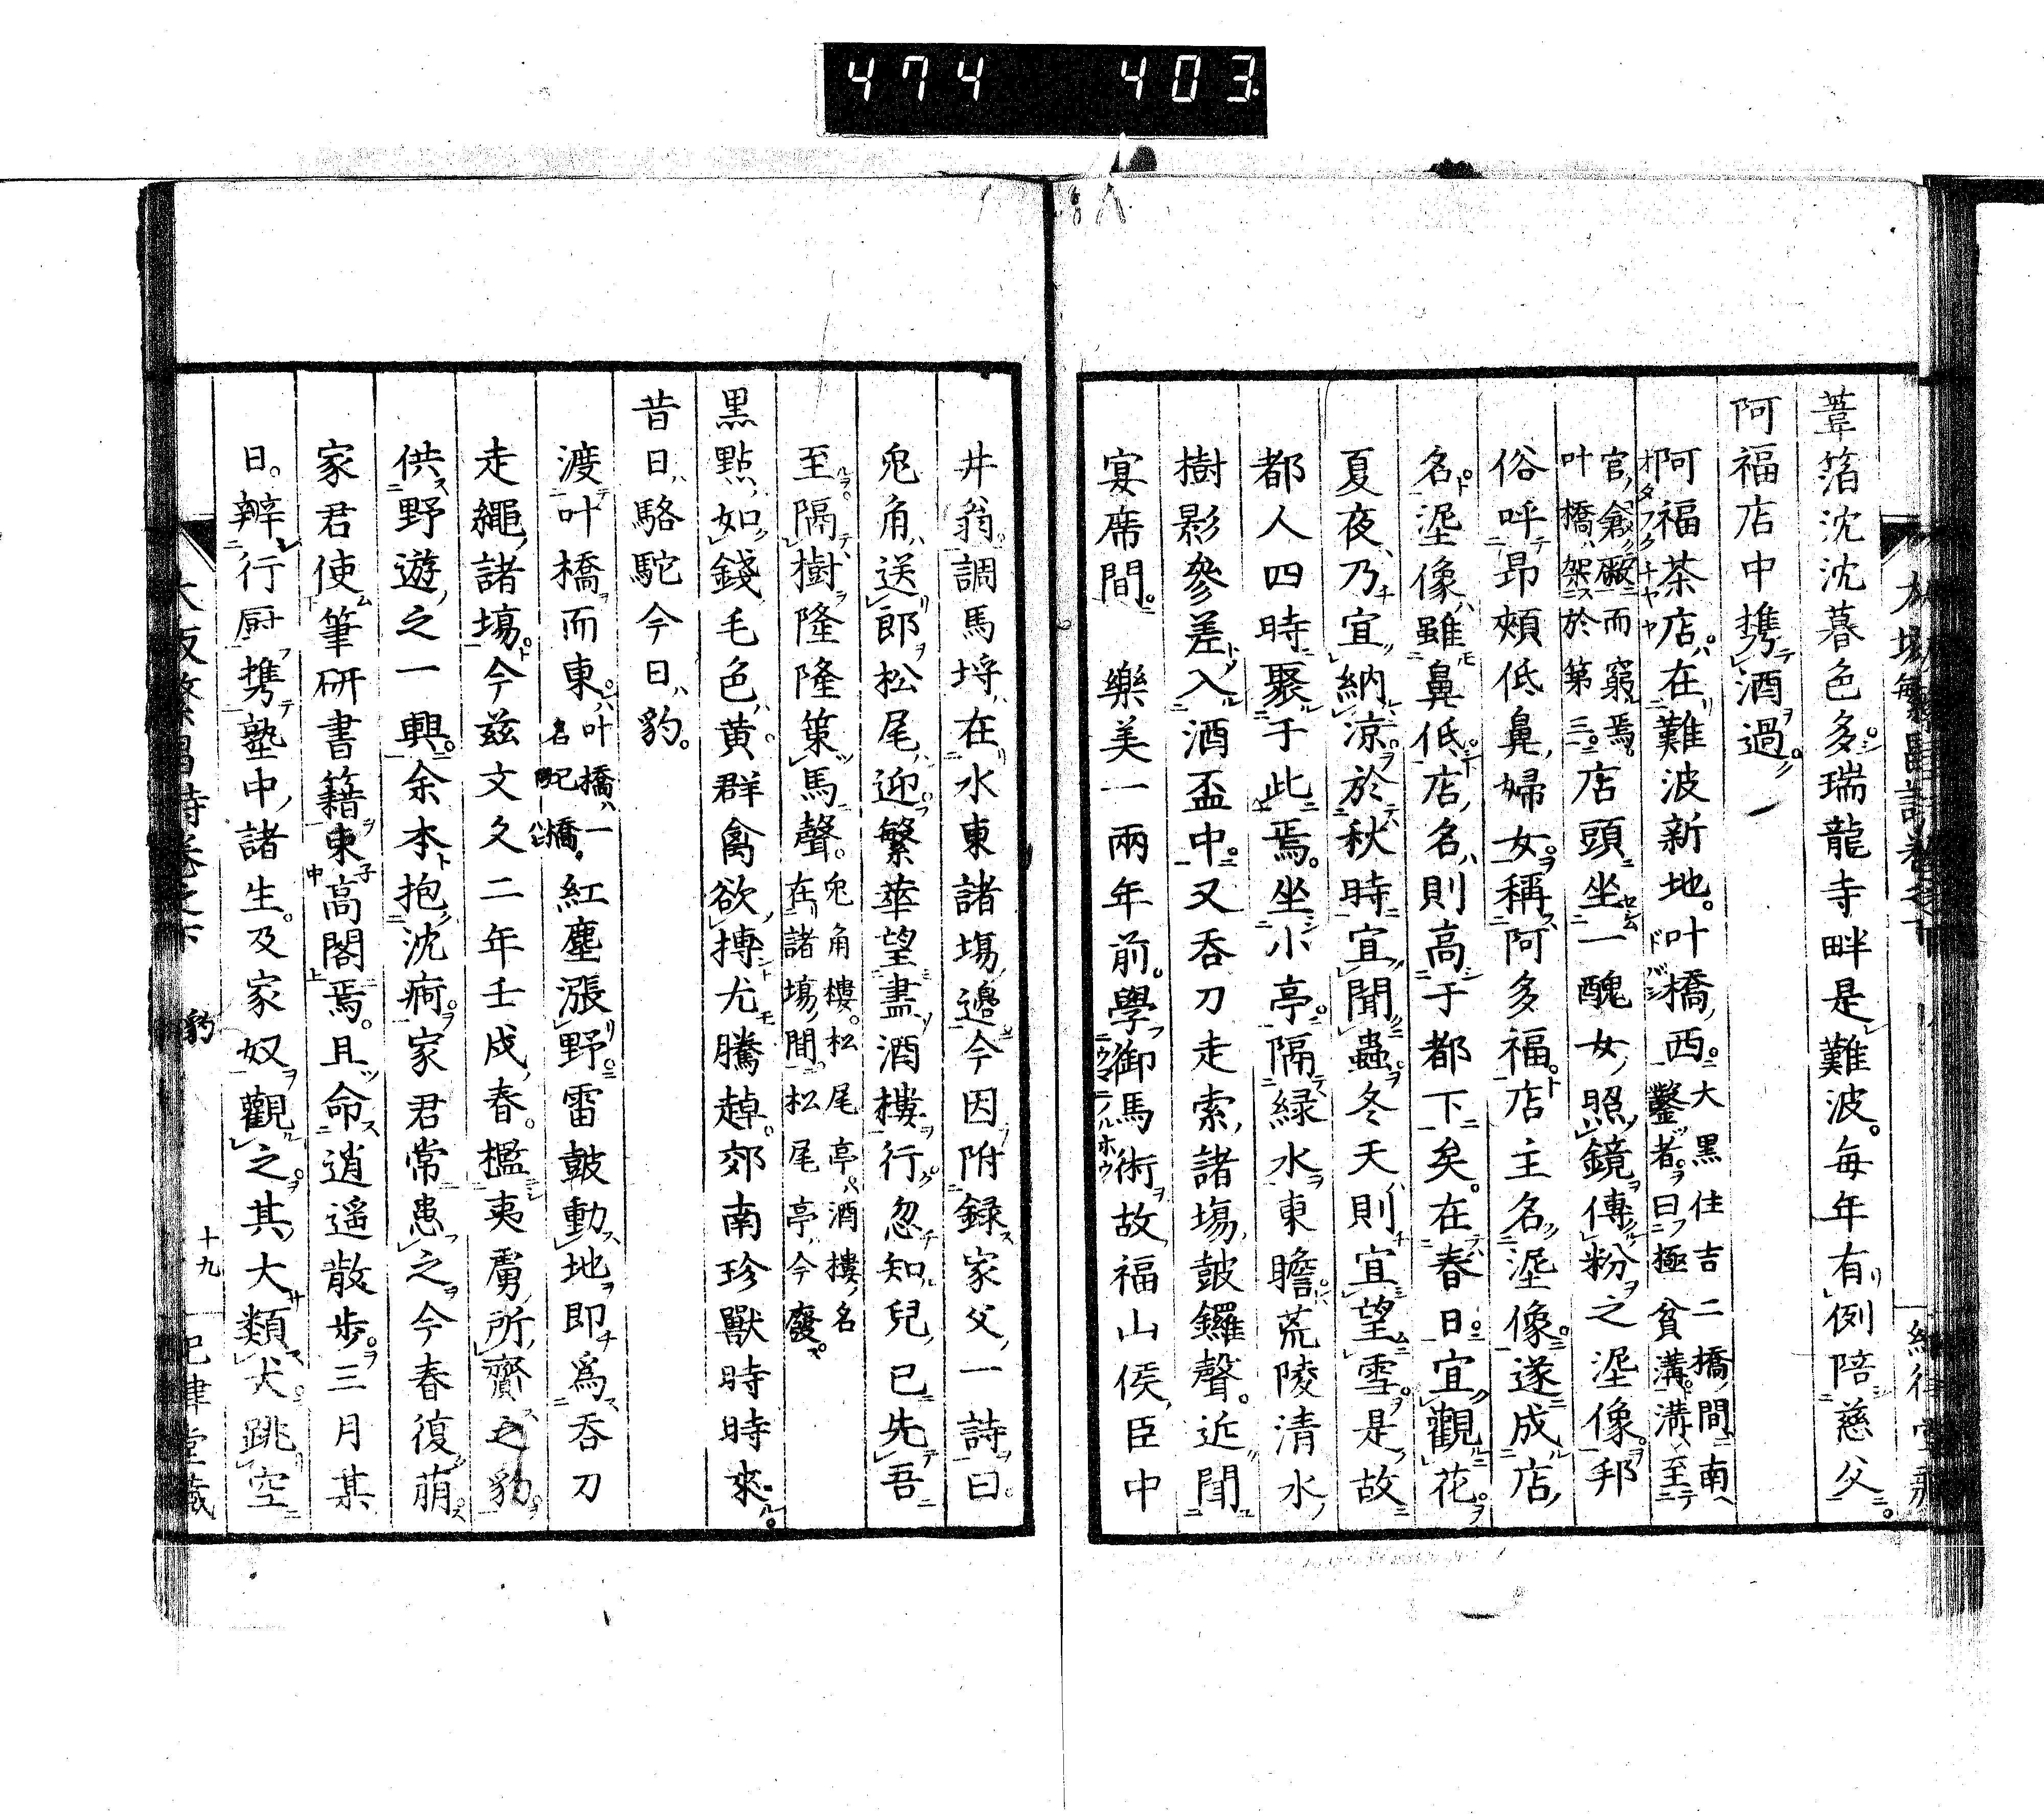 474 403
葦箔沈沈暮色多瑞龍寺畔是難波每年有例陪慈父
阿福店中携酒過
阿福茶店在難波新地叶橋西
大黒住吉二橋間南
鑿者曰極貧溝溝至
官倉廠而窮焉
叶橋架於第三
店頭坐一醜女照鏡傳粉之埿像邦
俗呼昻頰低鼻婦女稱阿多福店主名埿像遂成店
名埿像雖鼻低店名則高于都下矣在春日宜觀花
夏夜乃宜納涼於秋時宜聞蟲冬天則宜望雪是故
都人四時聚于此焉坐小亭隔緑水東瞻荒陵清水
樹影參差入酒盃中又吞刀走索諸場鼓鑼聲近聞
宴席間 樂美一兩年前學御馬術故福山侯臣中
井翁調馬埒在水東諸場邉今因附録家父一詩曰
兎角送郎松尾迎繁華望盡酒樓行忽知兒已先吾
至隔樹隆隆策馬聲
兎角樓松尾亭酒樓名
在諸場間松尾亭今廢
黒點如錢毛色黄群禽欲搏尤騰趠郊南珍獸時時來
昔日駱駝今日豹
渡叶橋而東
叶橋一
名記橋
紅塵漲野雷皷動地即爲吞刀
走繩諸場今兹文久二年壬戌春檻夷虜所齎之豹
供野遊之一興余本抱沈痾家君常患之今春復萠
家君使筆研書籍束高閣焉且命逍遥散歩三月某
日辨行厨携塾中諸生及家奴觀之其大類犬跳空
豹 十九